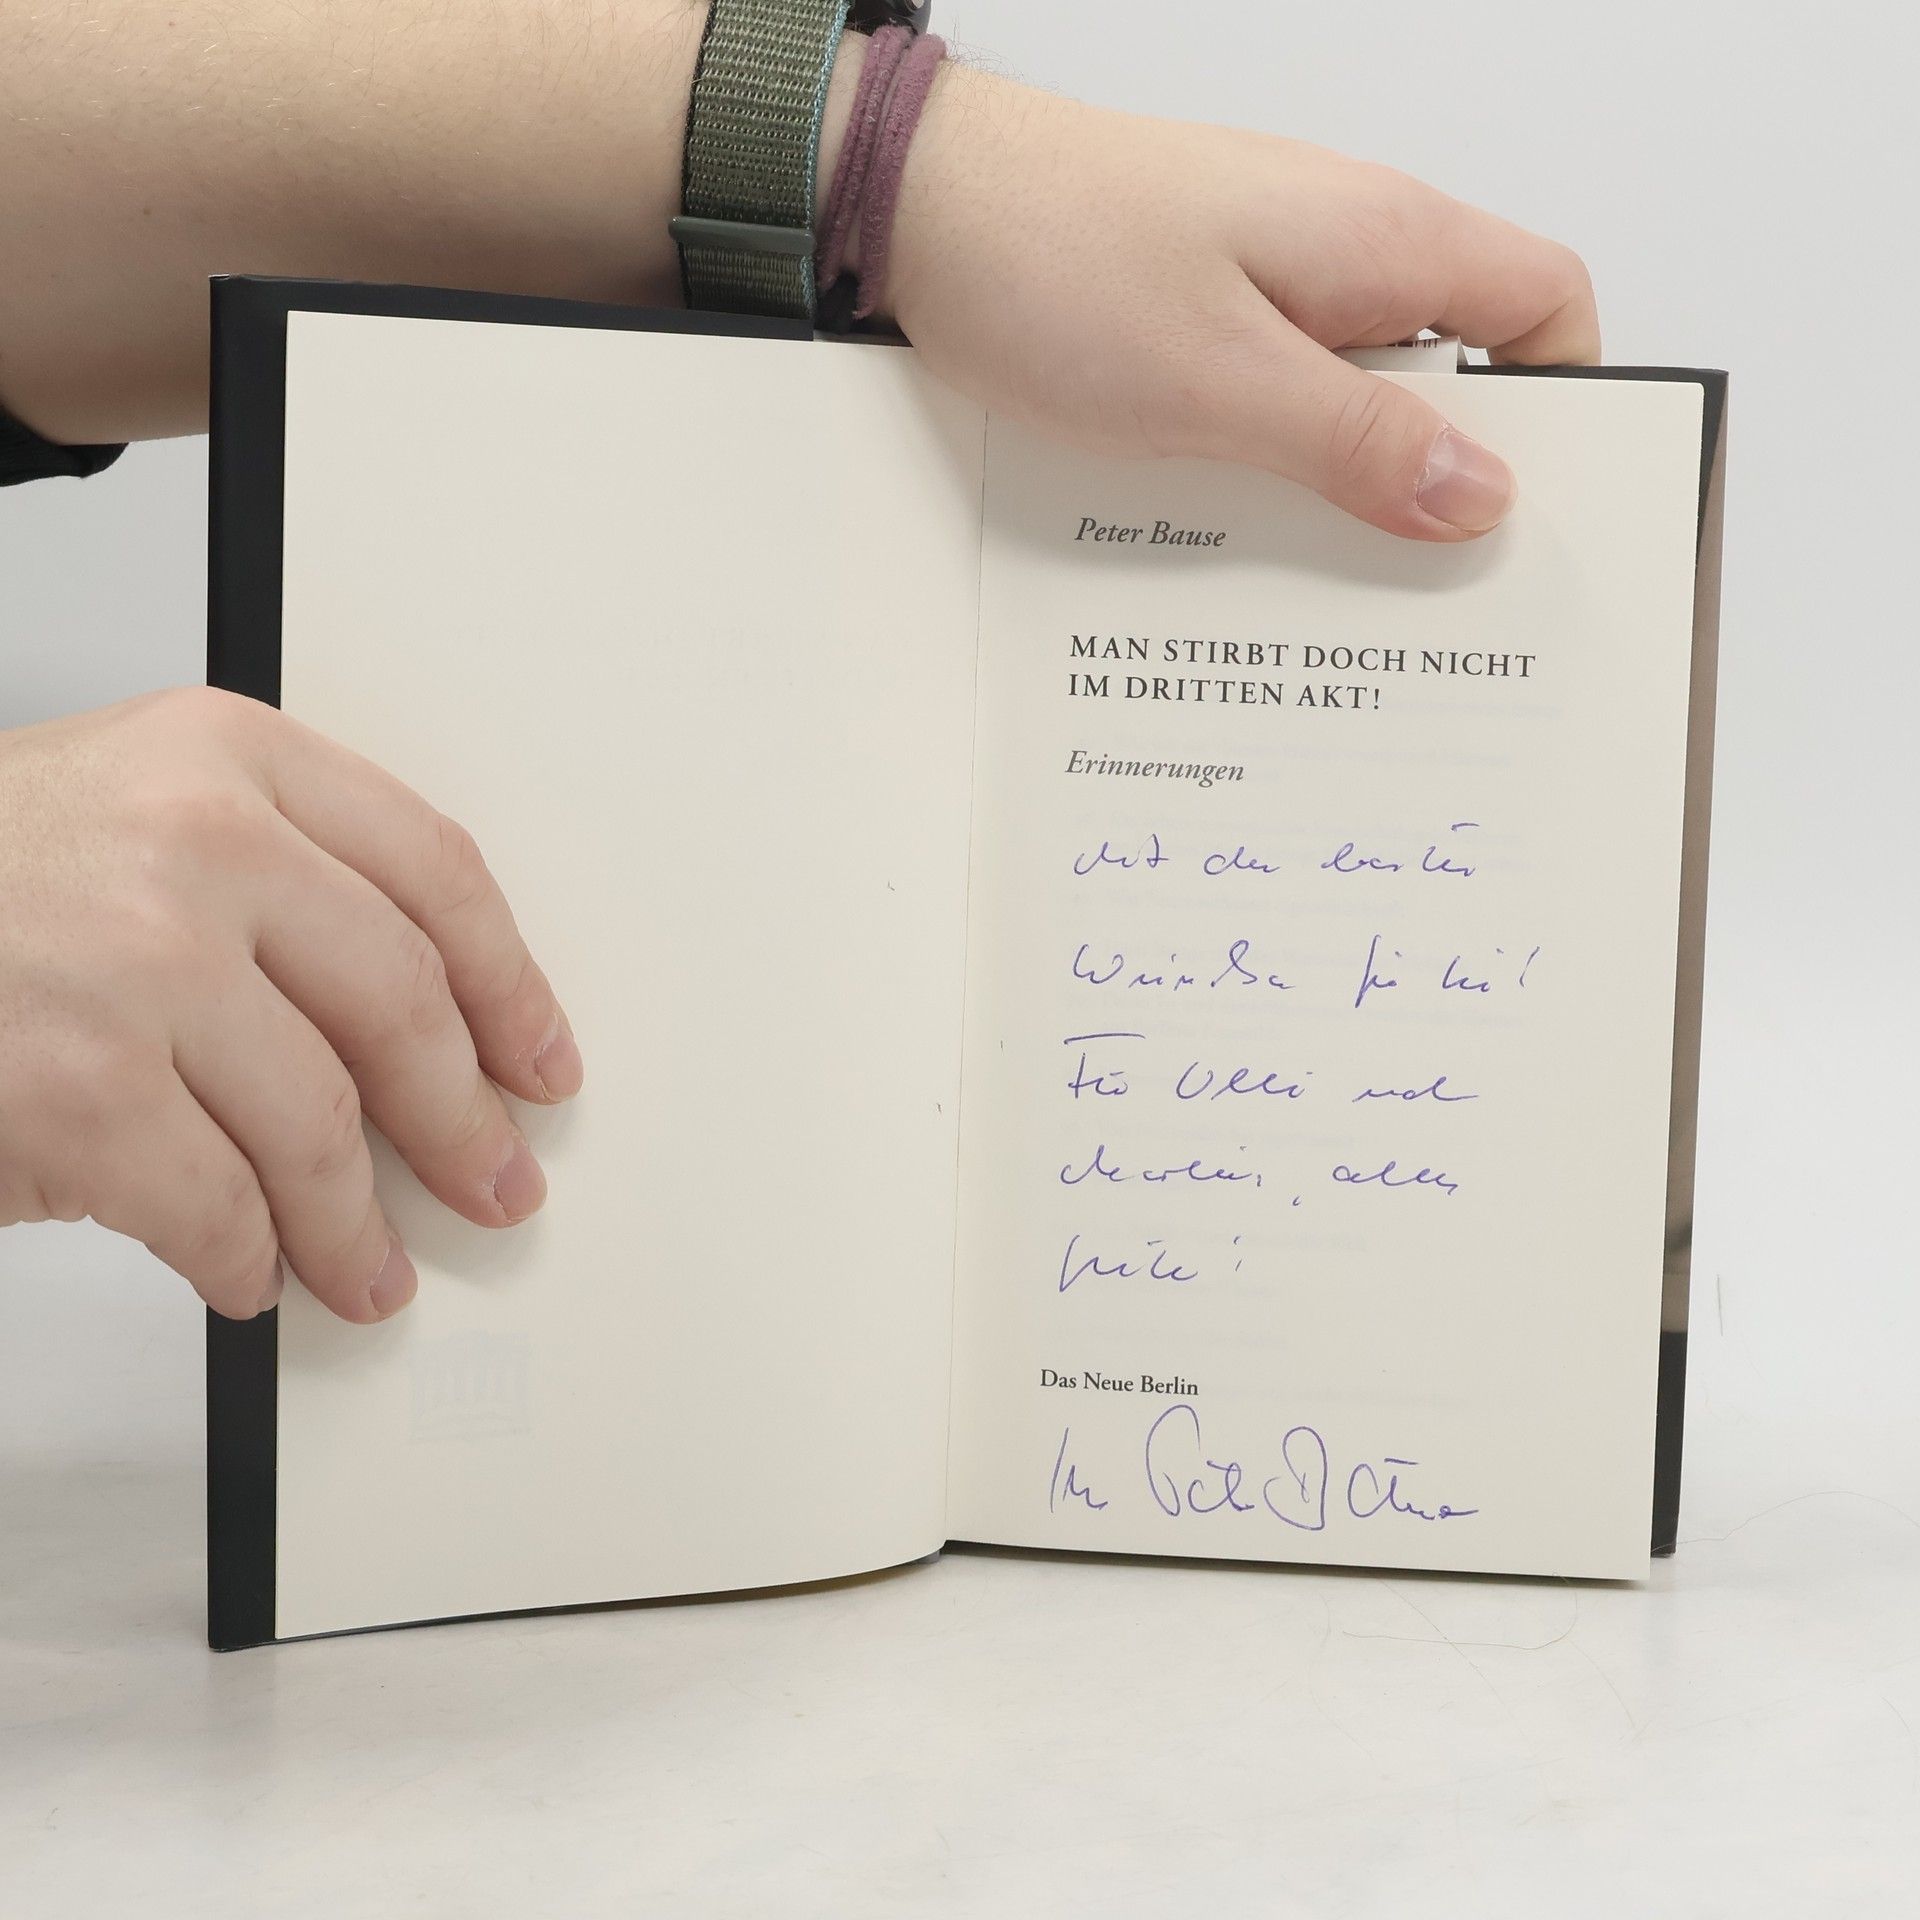 Peter Bause
MAN STIRBT DOCH NICHT
IM DRITTEN AKT!
Erinnerungen
Mit den besten
Wünschen für
Für Ulli und
alles
Gute!
Das Neue Berlin
Ihr Peter Bause